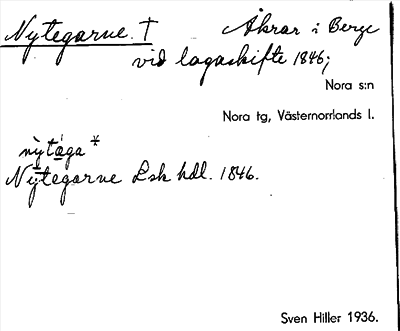 Nytegarne † Åkrar i Berge
vid lagaskifte 1846;
Nora s:n
Nora tg, Västernorrlands l.
nỳtä̀ga *
Nytegarne Lsk hdl. 1846.
Sven Hiller 1936.